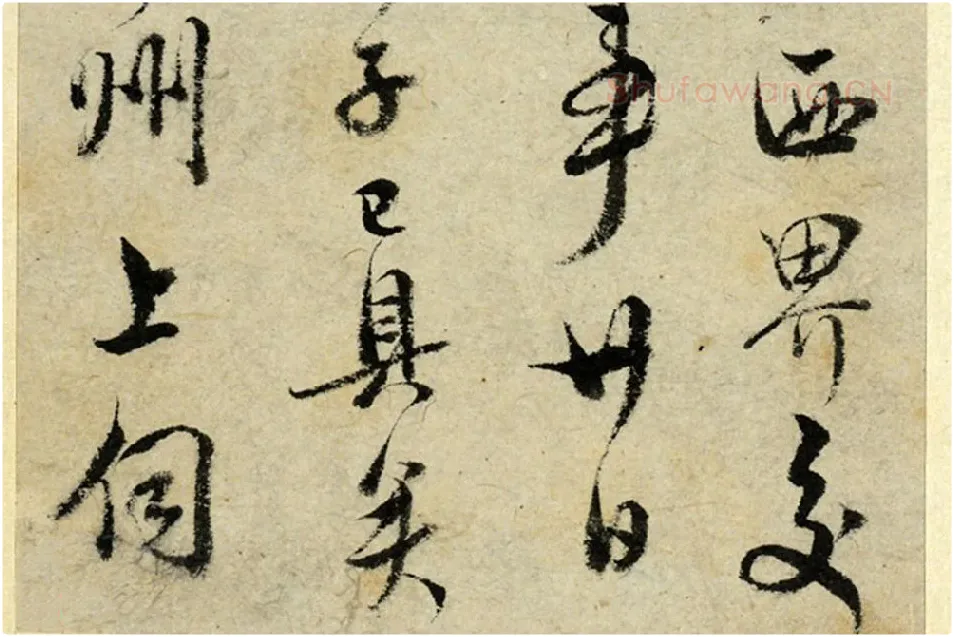 西界交
事卅日
子已具矣
州上伺
Shufawang.CN